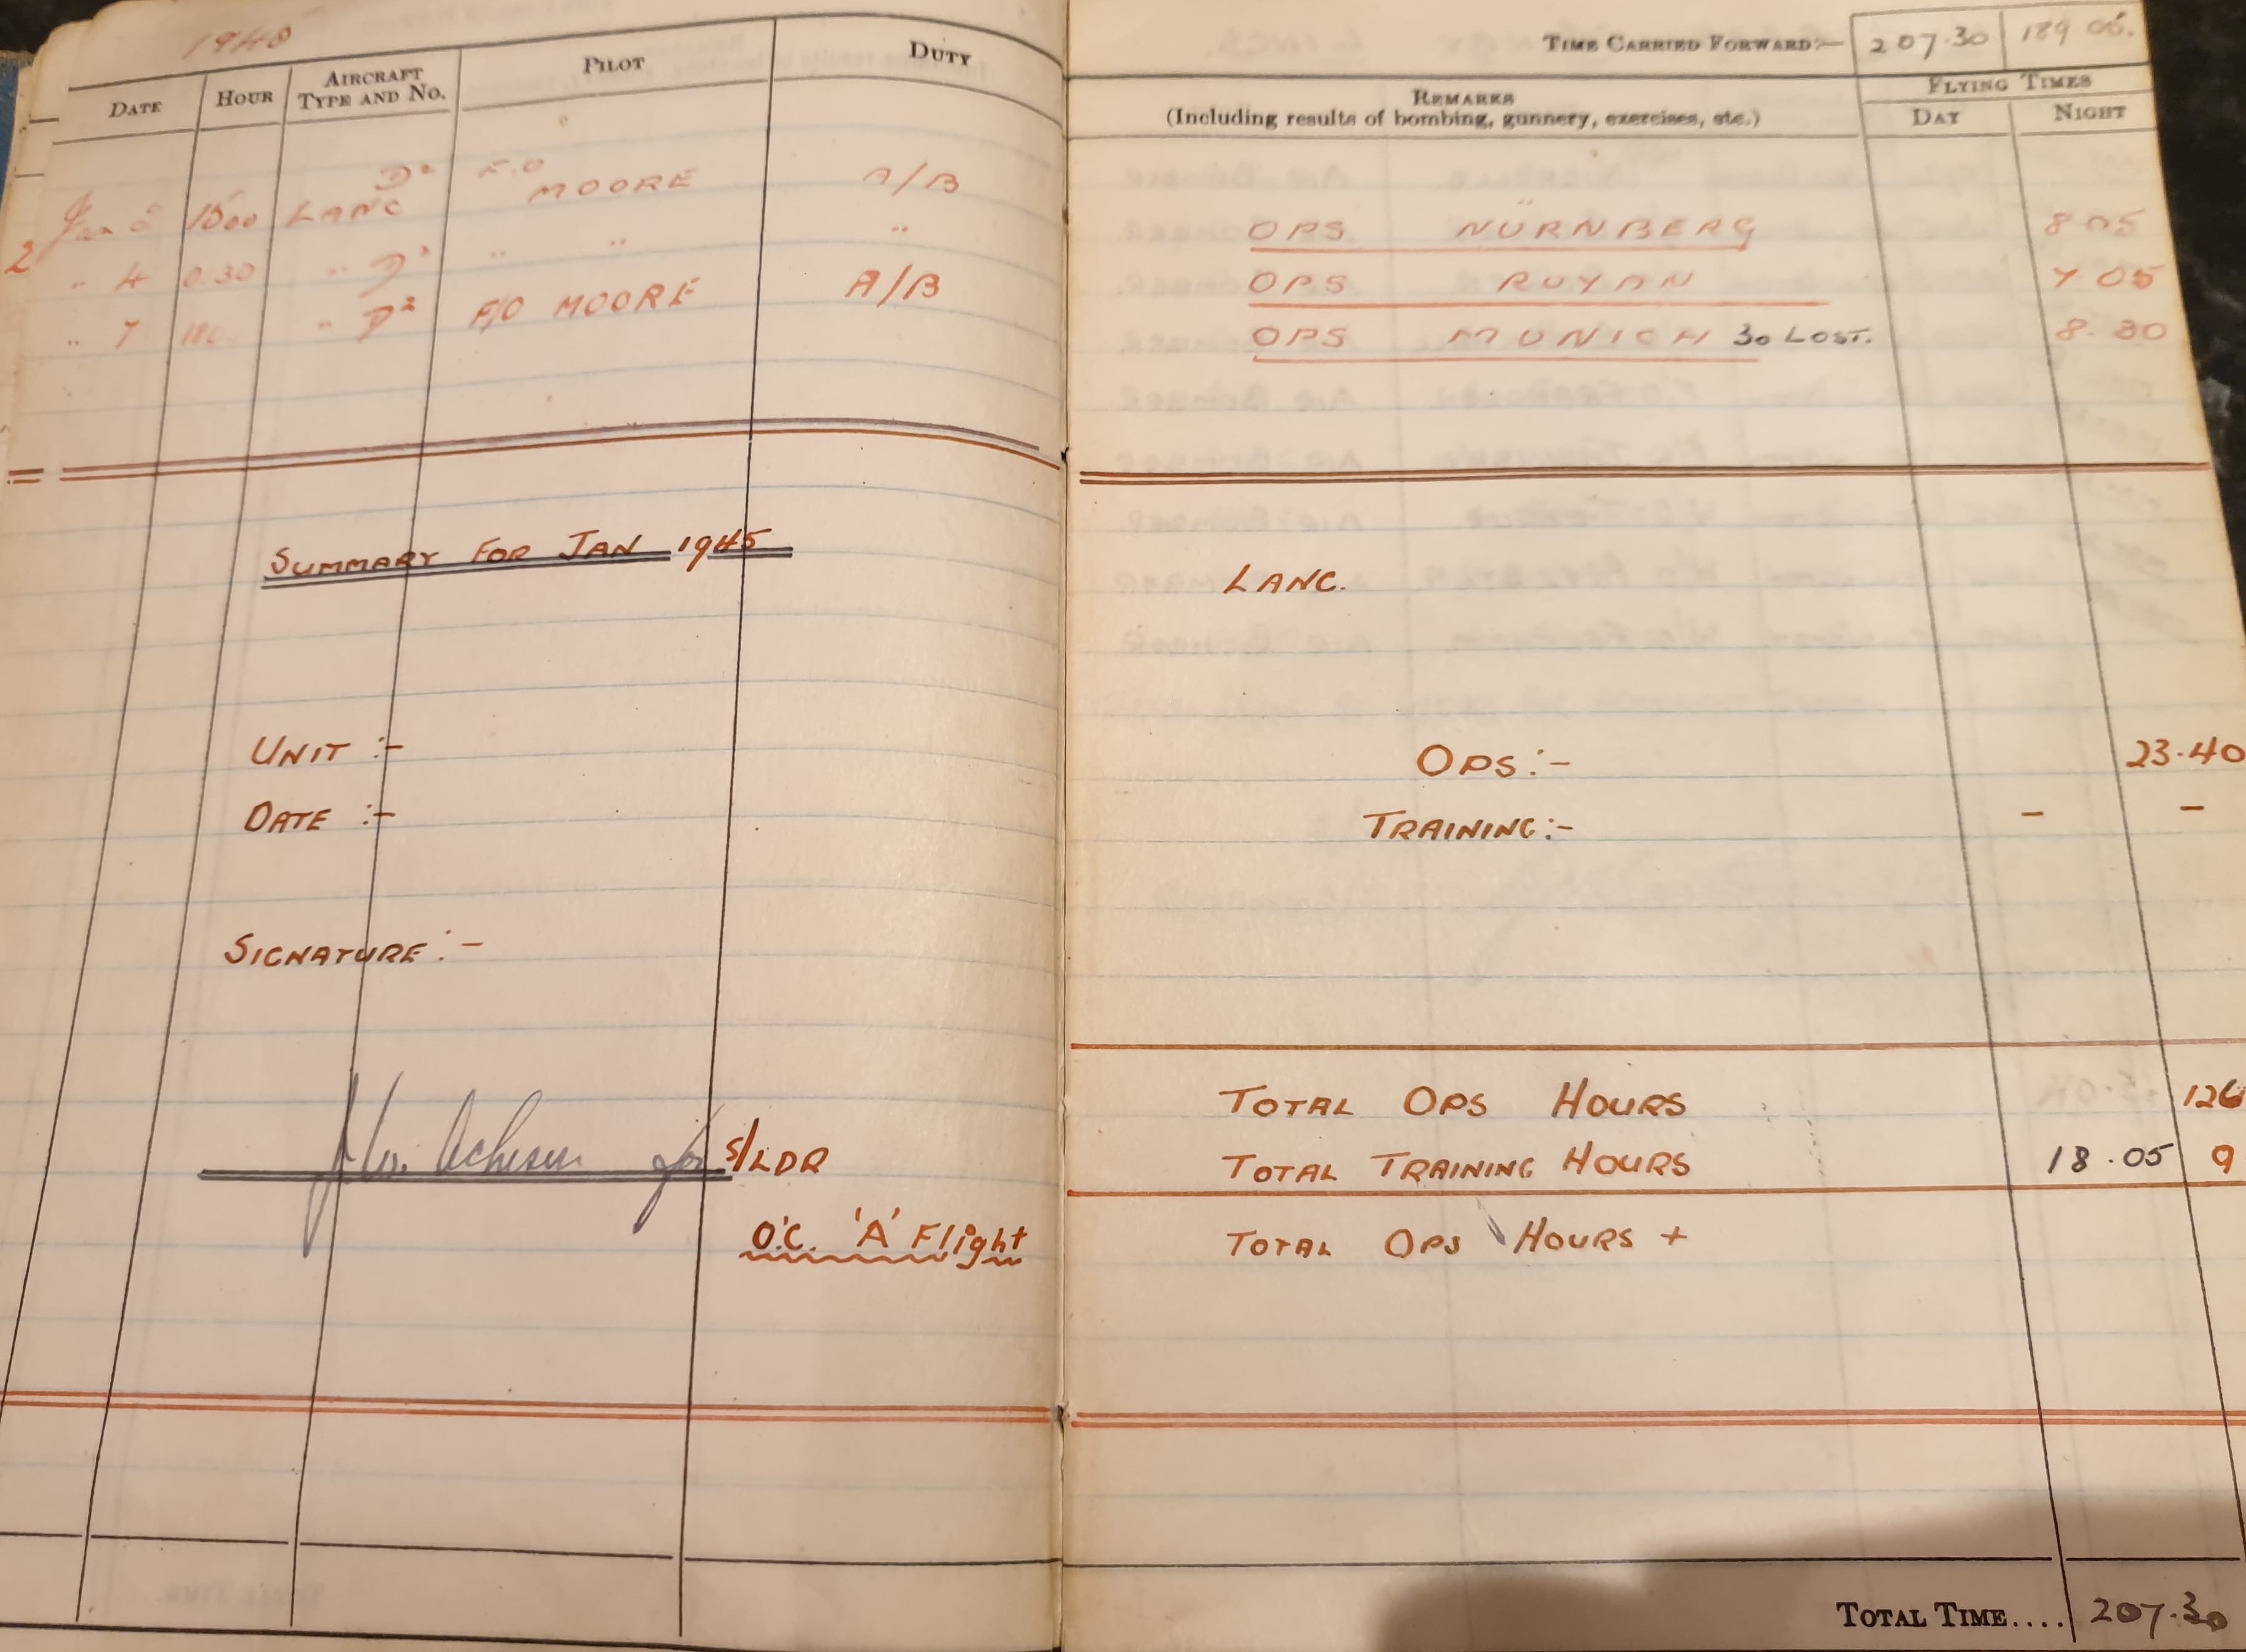 1945
DATE HOUR AIRCRAFT TYPE AND No. PILOT DUTY
Jan 1500 LANC D² F.O MOORE A/B
2 " 4 0.30 " D² " " "
" 7 " D² F/O MOORE A/B
SUMMARY FOR JAN 1945
UNIT :-
DATE :-
SIGNATURE :-
for S/LDR
O.C. 'A' Flight
TIME CARRIED FORWARD:— 207.30 189 05.
REMARKS
(Including results of bombing, gunnery, exercises, etc.)
FLYING TIMES
DAY NIGHT
OPS. NÜRNBERG 8 05
OPS ROYAN 7 05
OPS MUNICH 30 LOST. 8.30
LANC.
OPS :- 23.40
TRAINING :- - -
TOTAL OPS HOURS 126
TOTAL TRAINING HOURS 18.05 9
TOTAL OPS HOURS +
TOTAL TIME.... 207.30